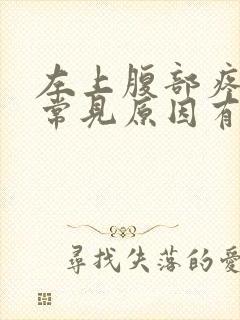 左上腹部疼
常见原因有
尋找失落的愛